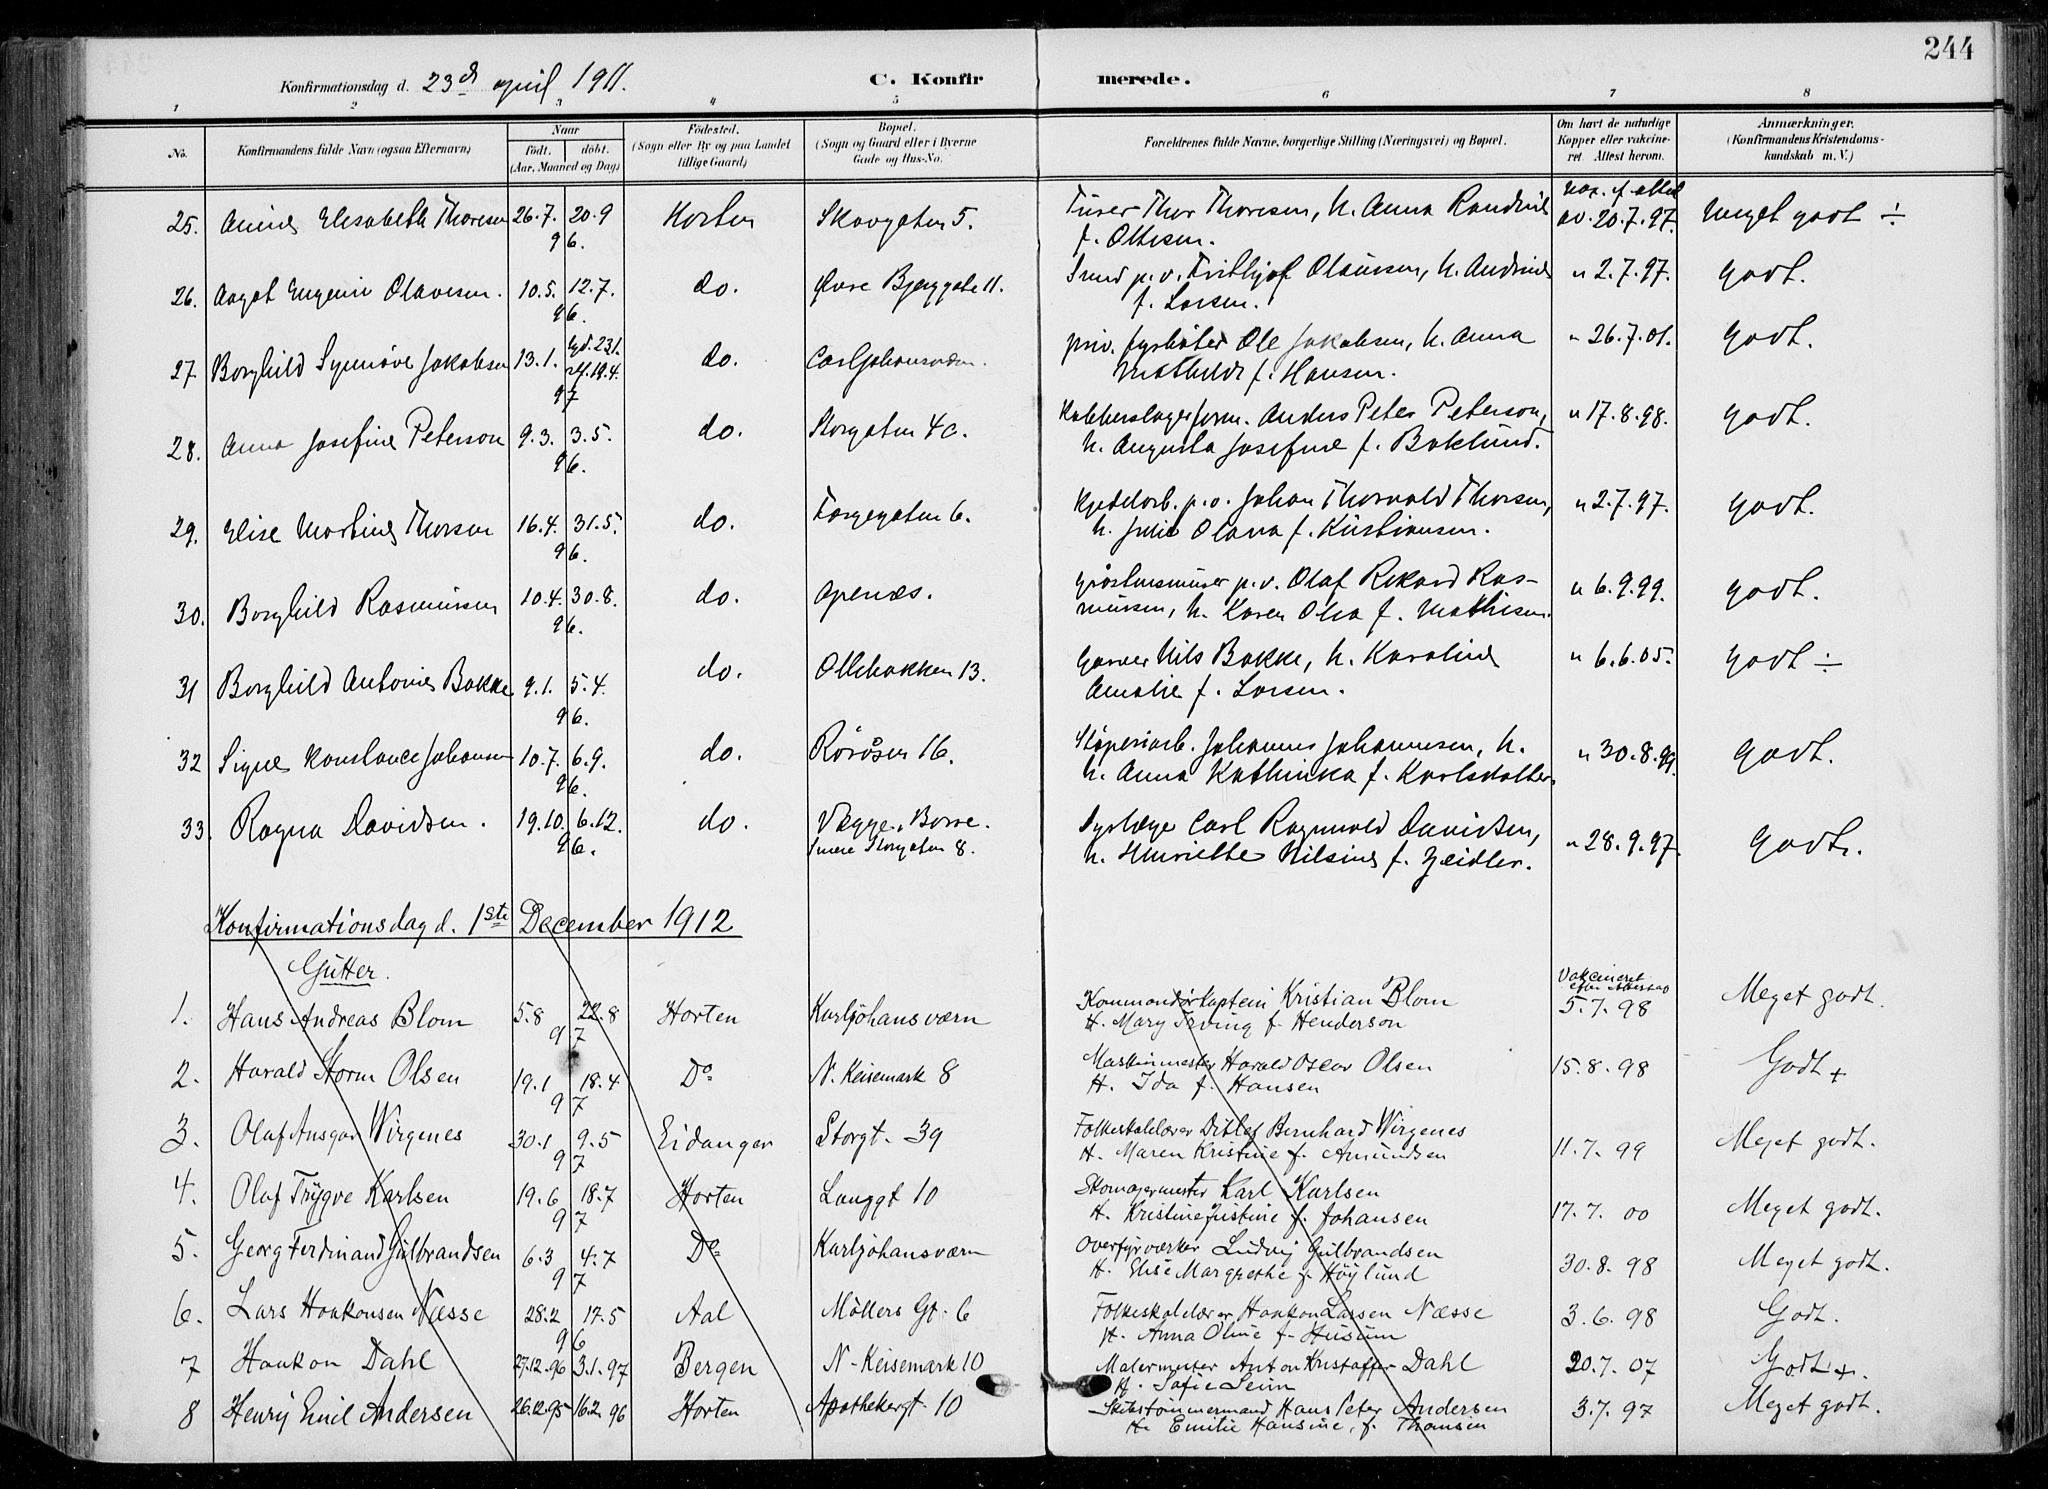 244
Konfirmationsdag d. 23d april 1911.
C. Konfirmerede.
1 2 3 4 5 6 7 8
No.
Konfirmandens fulde Navn (ogsaa Efternavn)
Naar
født. døbt.
(Aar, Maaned og Dag)
Fødested.
(Sogn eller By og paa Landet
tillige Gaard)
Bopæl.
(Sogn og Gaard eller i Byerne
Gade og Hus-No.
Forældrenes fulde Navne, borgerlige Stilling (Næringsvei) og Bopæl.
Om havt de naturlige
Kopper eller vakcine-
ret. Attest herom.
Anmærkninger.
(Konfirmandens Kristendoms-
kundskab m. V.)
25. Elisabeth Thoresen 26.7. 20.9 96. Horten Skovgaten 5. Thor Thoresen, h. Anna Randine
f. Ottesen. vax. f. attest av. 20.7.97. meget godt ÷
26. Aagot Eugenie Olavesen. 10.5. 12.7. 96. do. Øvre Bjerggate 11. Smed p.v. Frithjof Olaussen, h. Andrine
f. Larsen. " 2.7.97. godt.
27. Borghild Synnøve Jakobsen 13.1. 23.1. 19.4. 97 do. Carljohansværn. priv. fyrbøter Ole Jakobsen, h. Anna
Mathilde f. Hansen. " 26.7.01. godt.
28. Anna Josefine Peterson 9.3. 3.5. 96. do. Storgaten 4c. Kobberslagerform. Anders Peter Peterson,
h. Augusta Josefine f. Boklund. " 17.8.98. godt.
29. Elise Martine Thorsen 16.4. 31.5. 96. do. Torvegaten 6. Kjedelarb. p.v. Johan Thorvald Thorsen,
h. Julie Olava f. Kristiansen. " 2.7.97. godt.
30. Borghild Rasmussen 10.4. 30.8. 96. do. Apenæs. p.v. Olaf Rikard Ras-
mussen, h. Karen Olea f. Mathisen. " 6.9.99. godt.
31 Borghild Antonie Bakke 9.1. 5.4. 96. do. Ollebakken 13. Garver Nils Bakke, h. Karoline
Amalie f. Larsen. " 6.6.05. godt ÷
32 Signe Konstance Johansen 10.7. 6.9. 96. do. Røråsen 16. Støperiarb. Johannes Johannesen, h.
h. Anna Kathinka f. Karlsdatter " 30.8.99. godt.
33. Ragna Davidsen. 19.10. 6.12. 96. do. Vegge, Borre.
Storgaten 8. Carl Ragnvald Davidsen,
h. Henriette Nilsine f. Zeidler. " 28.9.97. godt.
Konfirmationsdag d. 1ste December 1912
Gutter.
1. Hans Andreas Blom 5.8 22.8 97 Horten Karljohansværn Kommandørkaptein Kristian Blom
H. Mary Irving f. Henderson Vakcineret efter Attest av 5.7.98 Meget godt.
2. Harald Storm Olsen 19.1 18.4 97 Do N. Keisemark 8 Maskinmester Harald Oscar Olsen
H. Ida f. Hansen 15.8.98 Godt +
3. Olaf Ansgar Wirgenes 30.1 9.5 97 Eidanger Storgt. 39 Folkeskolelærer Ditlef Bernhard Wirgenes
H. Maren Kristine f. Amundsen 11.7.99 Meget godt.
4. Olaf Trygve Karlsen 19.6 18.7 97 Horten Langgt 10 Skomagermester Karl Karlsen
H. Kristine Justine f. Johansen 17.7.00 Meget godt.
5. Georg Ferdinand Gulbrandsen 6.3 4.7 97 Do Karljohansværn Overfyrværker Ludvig Gulbrandsen
H. Elise Margrethe f. Høylund 30.8.98 Meget godt.
6. Lars Haakonsen Næsse 28.2 17.5 96 Aal Møllers Gt. 6 Folkeskolelærer Haakon Larsen Næsse
H. Anna Oline f. Husum 3.6.98 Godt.
7 Haakon Dahl 27.12.96 3.1.97 Bergen N-Keisemark 10 Malermester Anton Kristoffer Dahl
H. Sofie Seim 20.7.07 Godt +.
8 Henry Emil Andersen 26.12.95 16.2 96 Horten Apothekergt 10 Skibstømmermand Hans Peter Andersen
H. Emilie Hansine, f. Thomsen 3.7.97 Meget godt.